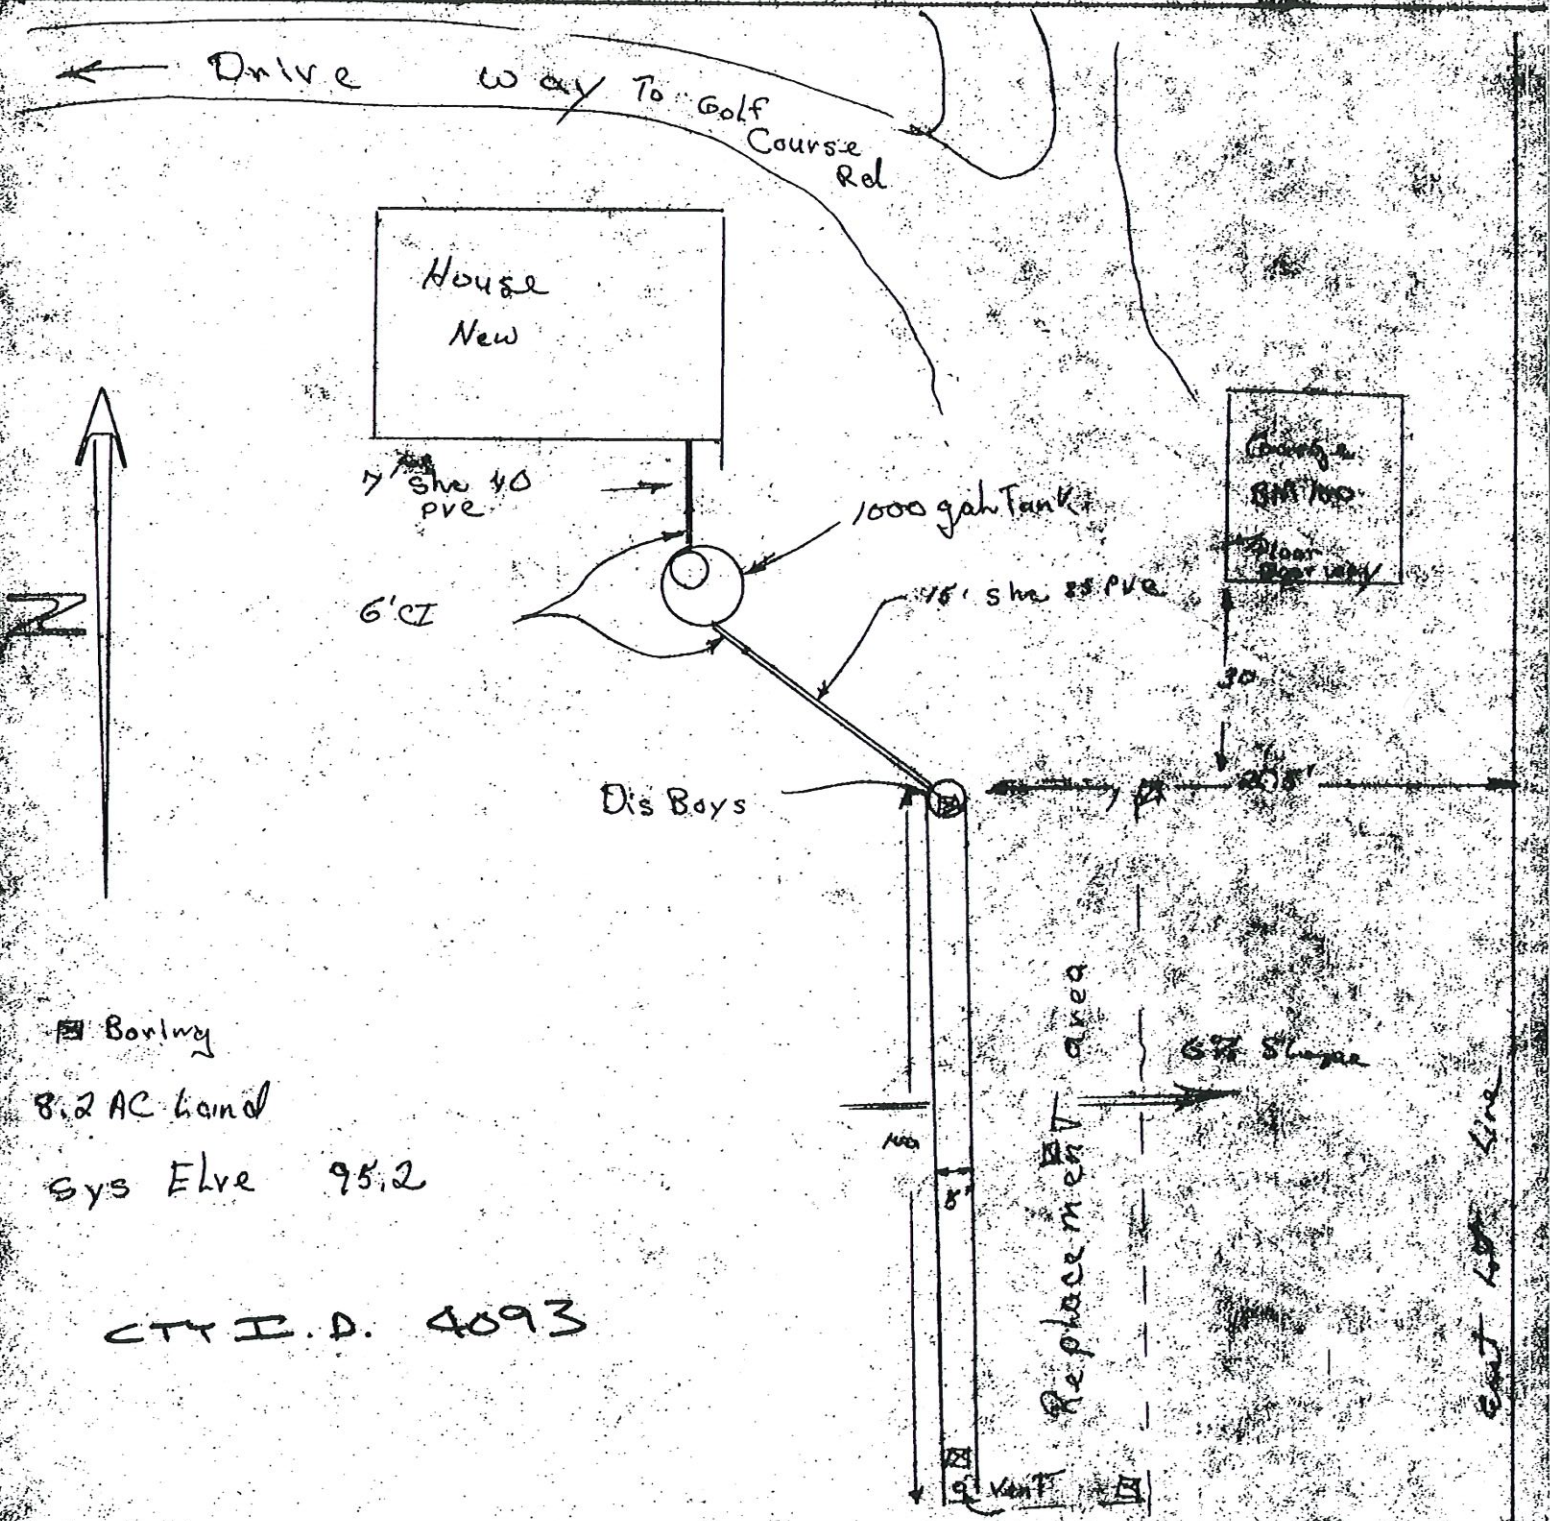 Drive way To Golf
Course
Rd
House
New
7' sho 40
pvc
1000 gah Tank
6' CI
sho pvc
BM 100
Floor
Door way
30
Dis Boys
Boring
8.2 AC Land
Sys Elve 95.2
CTY I.D. 4093
8'
Rephacement area
6% Slope
East Lot Line
Vent
N